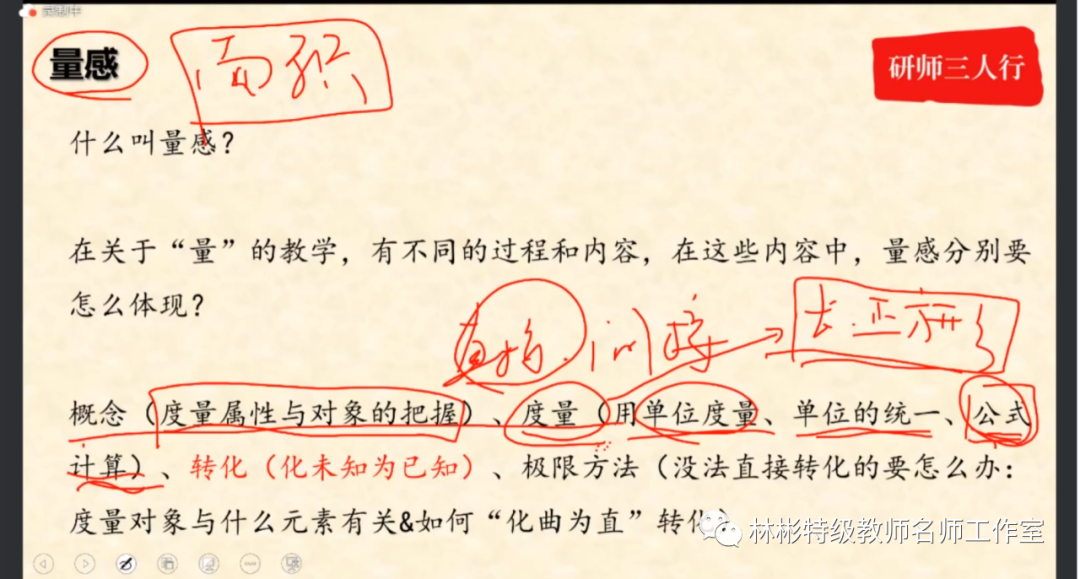 录制中
量感
面积
研师三人行
什么叫量感？
在关于“量”的教学，有不同的过程和内容，在这些内容中，量感分别要
怎么体现？
直接 间接
长.正方形
概念（度量属性与对象的把握）、度量（用单位度量、单位的统一、公式
计算）、转化（化未知为已知）、极限方法（没法直接转化的要怎么办：
度量对象与什么元素有关&如何“化曲为直”转化）
林彬特级教师名师工作室